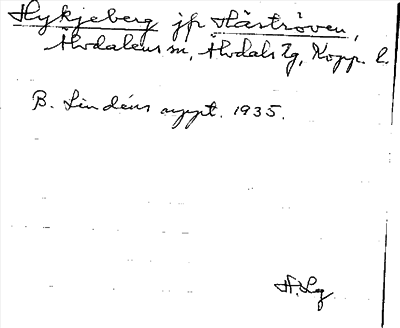 Hykjeberg jfr Häströven,
Älvdalens sn, Älvdals tg, Kopp. l.
B. Lindéns uppt. 1935.